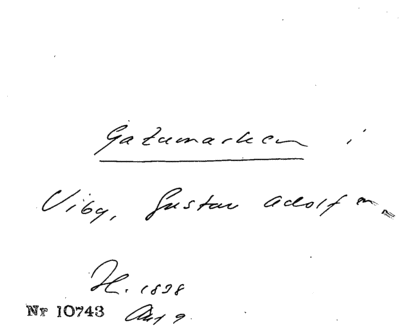 Gatumarken i
Viby, Gustav Adolf
H. 1898
Nr 10743